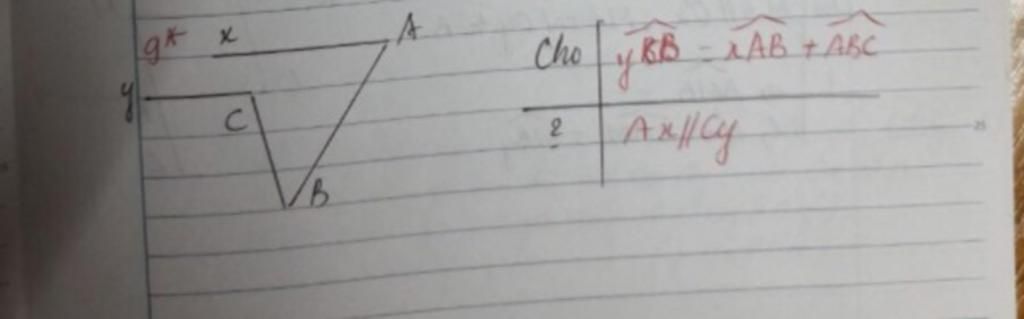 9* x A
y
C
B
Cho yBB = xAB + ABC
? Ax//Cy
25